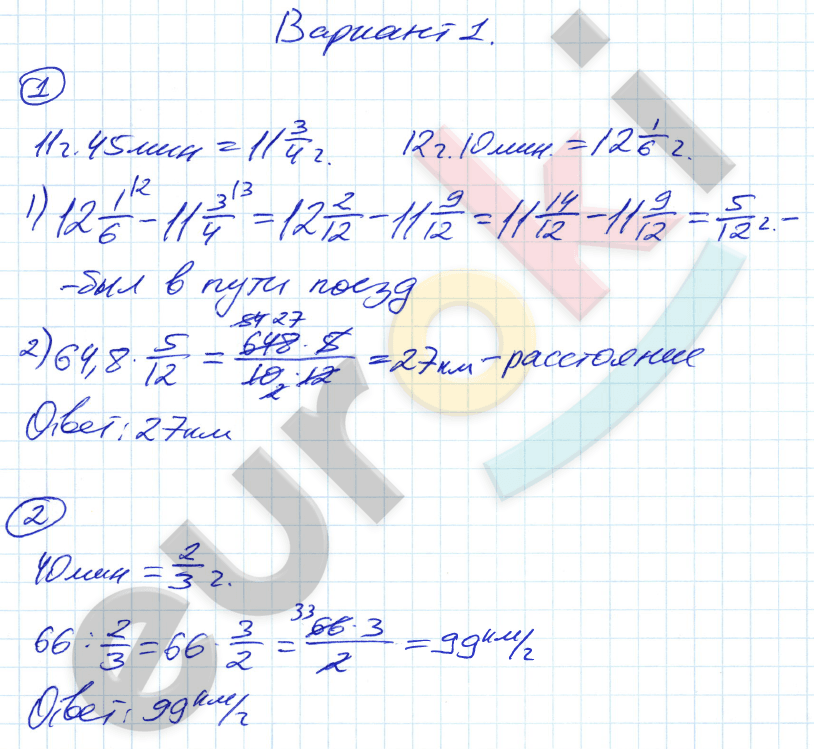 Вариант 1.
1
11ч. 45мин = 11 3/4 ч. 12ч. 10мин. = 12 1/6 ч.
1) 12 1/6 \2 - 11 3/4 \3 = 12 2/12 - 11 9/12 = 11 14/12 - 11 9/12 = 5/12 ч. -
- был в пути поезд
2) 64,8 · 5/12 = 54 27 648 · 5 / 10 · 12 2 = 27км - расстояние
Ответ: 27км
2
40мин = 2/3 ч.
66 : 2/3 = 66 · 3/2 = 33 66 · 3 / 2 = 99 км/ч
Ответ: 99 км/ч
euroki